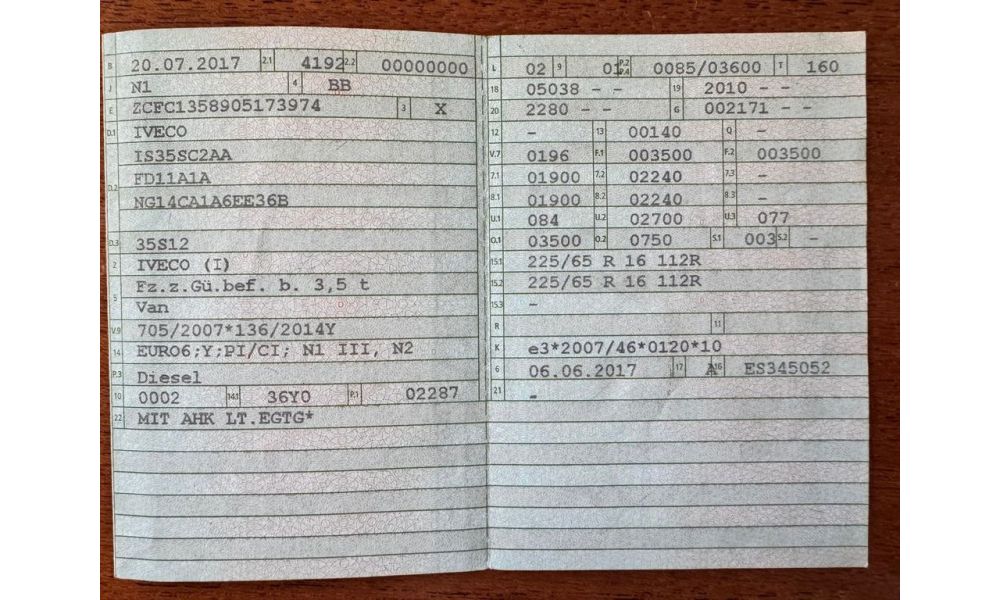 B 20.07.2017 2.1 4192 2.2 00000000
J N1 4 BB
E ZCFC1358905173974 3 X
D.1 IVECO
IS35SC2AA
D.2 FD11A1A
NG14CA1A6EE36B
D.3 35S12
2 IVECO (I)
5 Fz.z.Gü.bef. b. 3,5 t
Van
V.9 705/2007*136/2014Y
14 EURO6;Y;PI/CI; N1 III, N2
P.3 Diesel
10 0002 14.1 36Y0 P.1 02287
22 MIT AHK LT.EGTG*
L 02 9 01 P.2 P.4 0085/03600 T 160
18 05038 - - 19 2010 - -
20 2280 - - G 002171 - -
12 - 13 00140 Q -
V.7 0196 F.1 003500 F.2 003500
7.1 01900 7.2 02240 7.3 -
8.1 01900 8.2 02240 8.3 -
U.1 084 U.2 02700 U.3 077
O.1 03500 O.2 0750 S.1 003 S.2 -
15.1 225/65 R 16 112R
15.2 225/65 R 16 112R
15.3 -
R 11
K e3*2007/46*0120*10
6 06.06.2017 17 A 16 ES345052
21 -